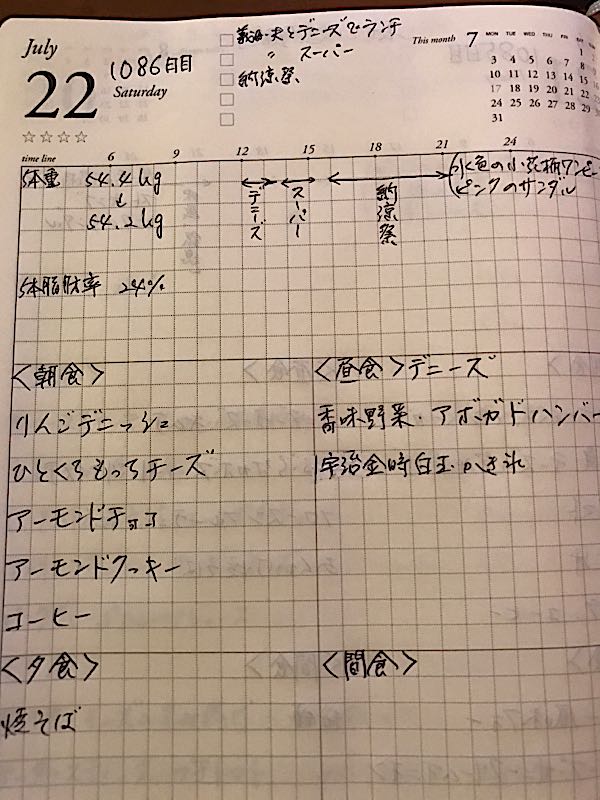 July
22
1086日目
Saturday
義母・夫とデニーズでランチ
〃 スーパー
納涼祭
This month 7
MON TUE WED THU FRI SAT SUN
1 2
3 4 5 6 7 8 9
10 11 12 13 14 15 16
17 18 19 20 21 22
24 25 26 27 28 29
31
time line 6 9 12 15 18 21 24
体重 54.4kg
↓
54.2kg
デニーズ
スーパー
納涼祭
水色の小花柄ワンピー
ピンクのサンダル
体脂肪率 24%
<朝食>
りんごデニッシュ
ひとくちもっちチーズ
アーモンドチョコ
アーモンドクッキー
コーヒー
<昼食>デニーズ
香味野菜・アボガドハンバー
宇治金時白玉かき氷
<夕食>
焼そば
<間食>